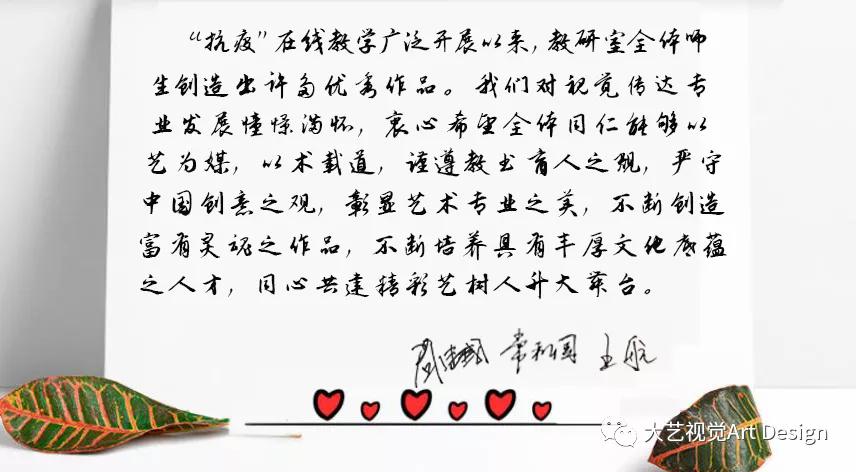 “抗疫”在线教学广泛开展以来，教研室全体师
生创造出许多优秀作品。我们对视觉传达专
业发展憧憬满怀，衷心希望全体同仁能够以
艺为媒，以术载道，谨遵教书育人之规，严守
中国创意之观，彰显艺术专业之美，不断创造
富有灵魂之作品，不断培养具有丰厚文化底蕴
之人才，同心共建精彩艺树人升大舞台。
常利国 王航
大艺视觉Art Design